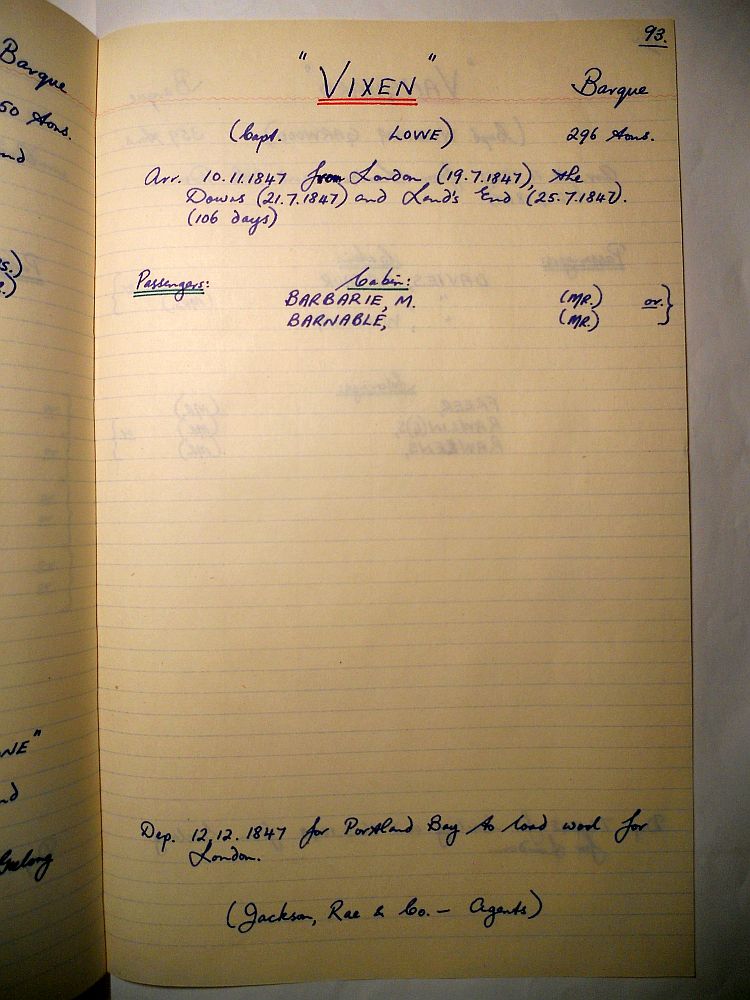 93.
"VIXEN" Barque
(Capt. LOWE) 296 tons.
Arr. 10.11.1847 from London (19.7.1847), the
Downs (21.7.1847) and Land's End (25.7.1847).
(106 days)
Passengers: Cabin:
BARBARIE, M. (MR.) or. }
BARNABLE, (MR.)
Dep. 12.12.1847 for Portland Bay to load wool for
London.
(Jackson, Rae & Co. - Agents)
Barque
50 tons.
nd
s.)
NE"
nd
Geelong